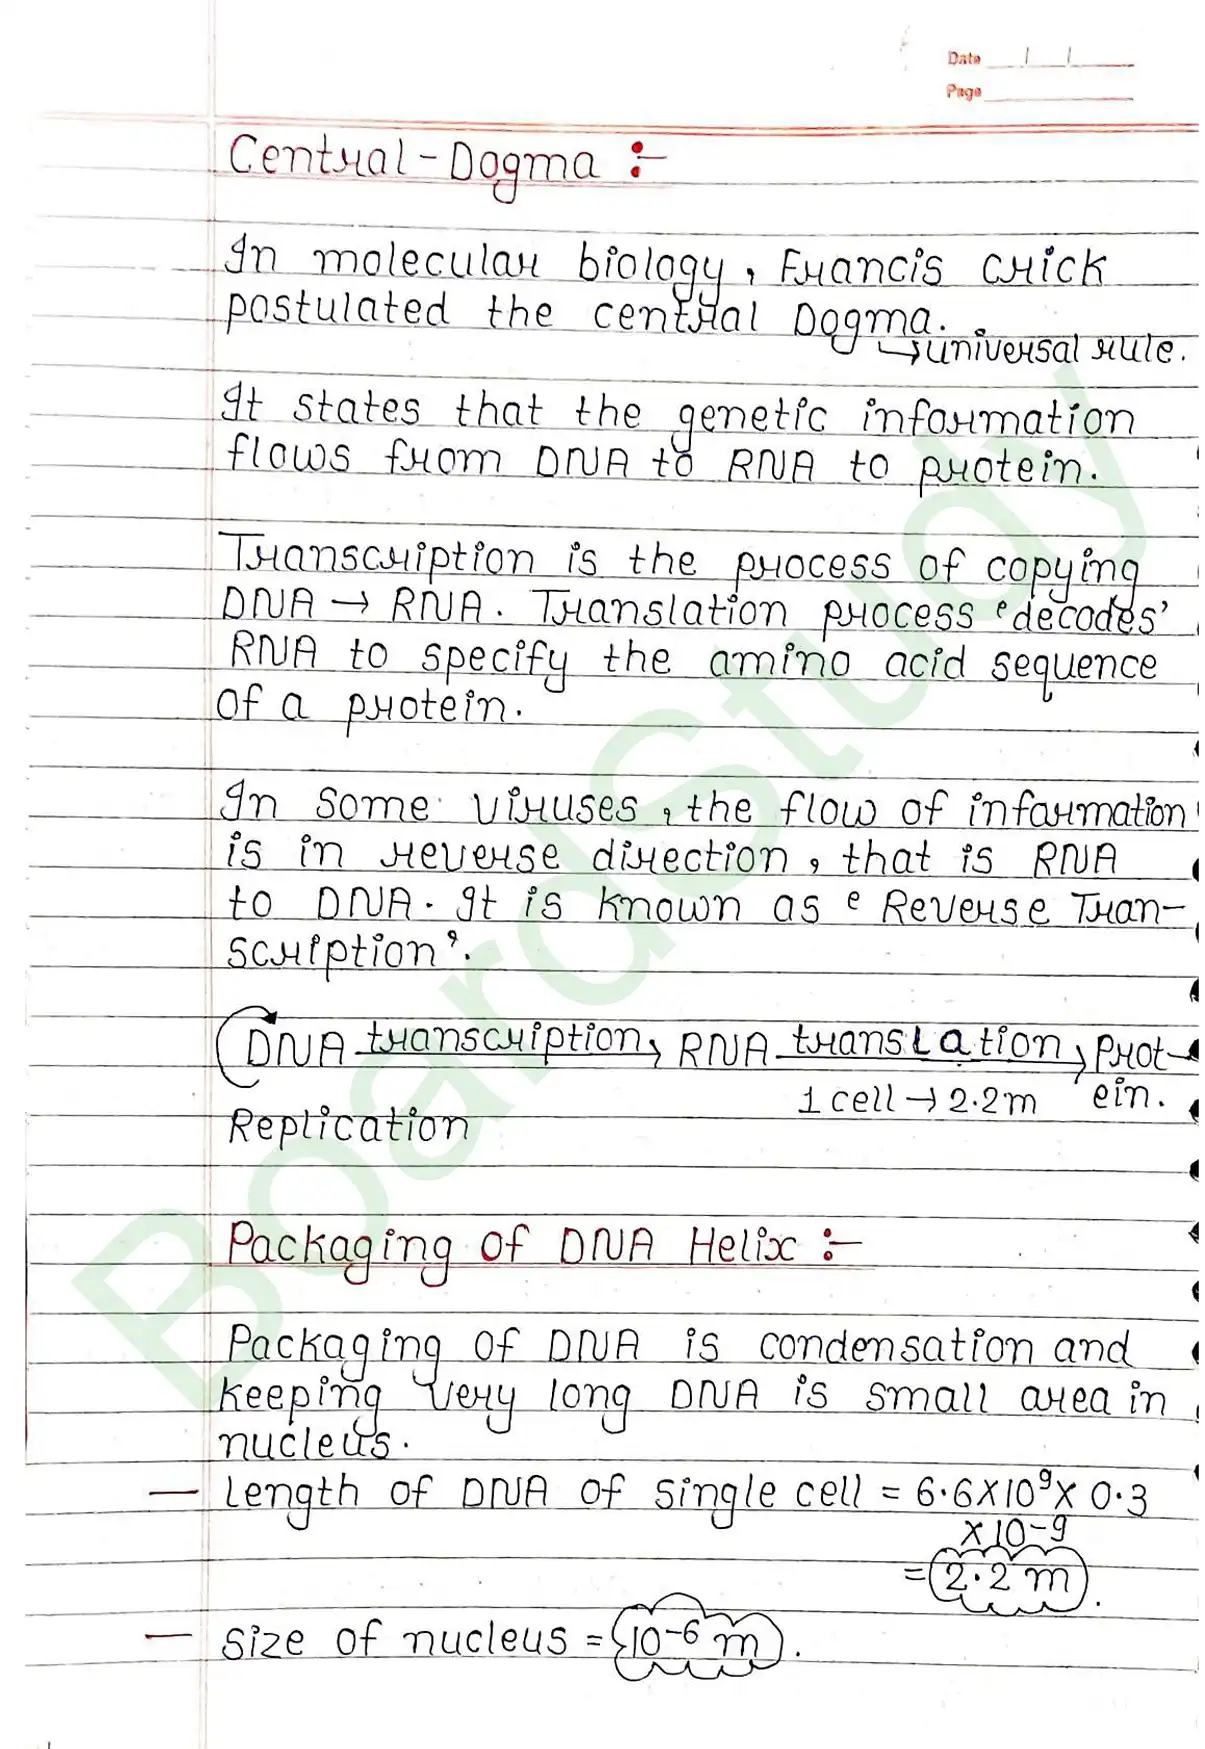 Date
Page
Central-Dogma :-
In molecular biology, Francis crick
postulated the central Dogma.
→universal rule.
It states that the genetic information
flows from DNA to RNA to protein.
Transcription is the process of copying
DNA → RNA. Translation process 'decodes'
RNA to specify the amino acid sequence
of a protein.
In some viruses, the flow of information
is in reverse direction, that is RNA
to DNA. It is known as 'Reverse Tran-
scription'.
DNA transcription→ RNA translation→ Prot-
1 cell → 2.2m ein.
Replication
Packaging of DNA Helix :-
Packaging of DNA is condensation and
keeping very long DNA is small area in
nucleus.
— length of DNA of single cell = 6.6×10⁹× 0.3
×10-9
= 2.2 m.
— size of nucleus = 10⁻⁶ m.
BoardStudy